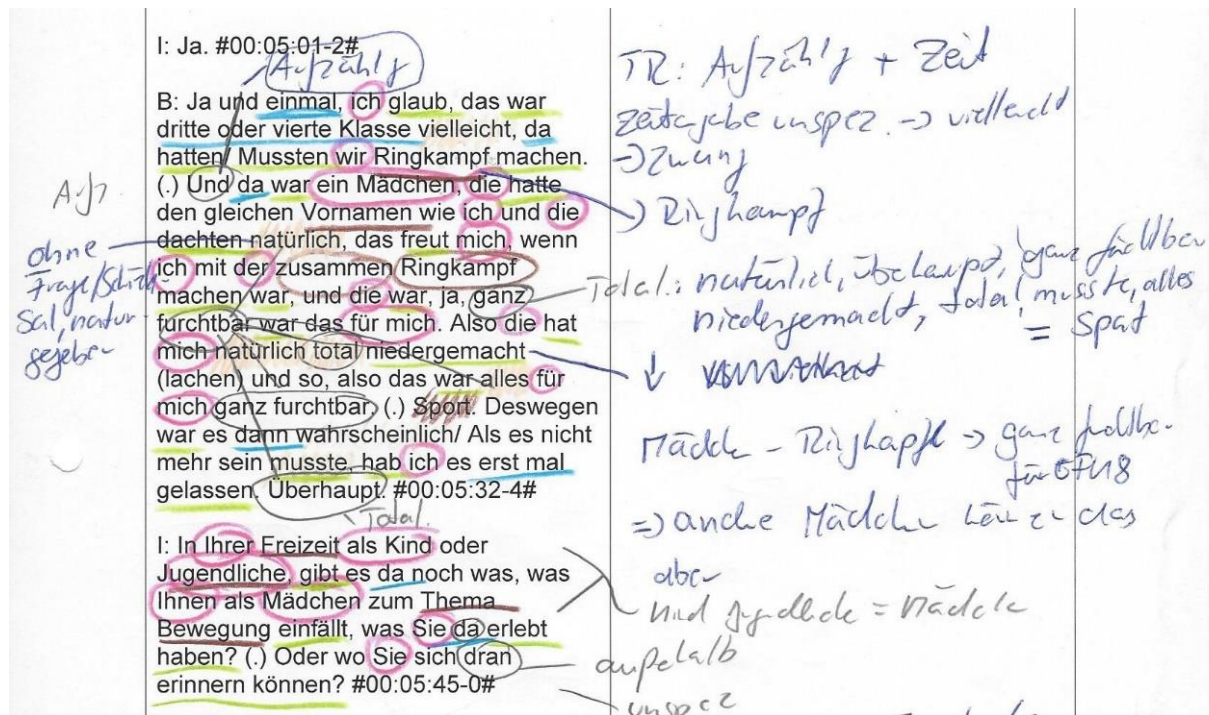 I: Ja. #00:05:01-2#
Aufzählg
B: Ja und einmal, ich glaub, das war
dritte oder vierte Klasse vielleicht, da
hatten/ Mussten wir Ringkampf machen.
(.) Und da war ein Mädchen, die hatte
den gleichen Vornamen wie ich und die
dachten natürlich, das freut mich, wenn
ich mit der zusammen Ringkampf
machen war, und die war, ja, ganz
furchtbar war das für mich. Also die hat
mich natürlich total niedergemacht
(lachen) und so, also das war alles für
mich ganz furchtbar, (.) Sport. Deswegen
war es dann wahrscheinlich/ Als es nicht
mehr sein musste, hab ich es erst mal
gelassen. Überhaupt. #00:05:32-4#
Total.
I: In Ihrer Freizeit als Kind oder
Jugendliche, gibt es da noch was, was
Ihnen als Mädchen zum Thema
Bewegung einfällt, was Sie da erlebt
haben? (.) Oder wo Sie sich dran
erinnern können? #00:05:45-0#
Aufz.
ohne
Frage/Schick-
sal, natur
gegeben
TR: Aufzählg + Zeit
Zeitangabe unspez. -> vielleicht
-> Zwang
-> Ringkampf
Total.: natürlich, überhaupt, ganz furchtbar
niedergemacht, total, musste, alles
= Sport
Mädchen - Ringkampf -> ganz furchtbar
für
=> andere Mädchen das
aber
Kind Jugendliche = Mädchen
außerhalb
unspez